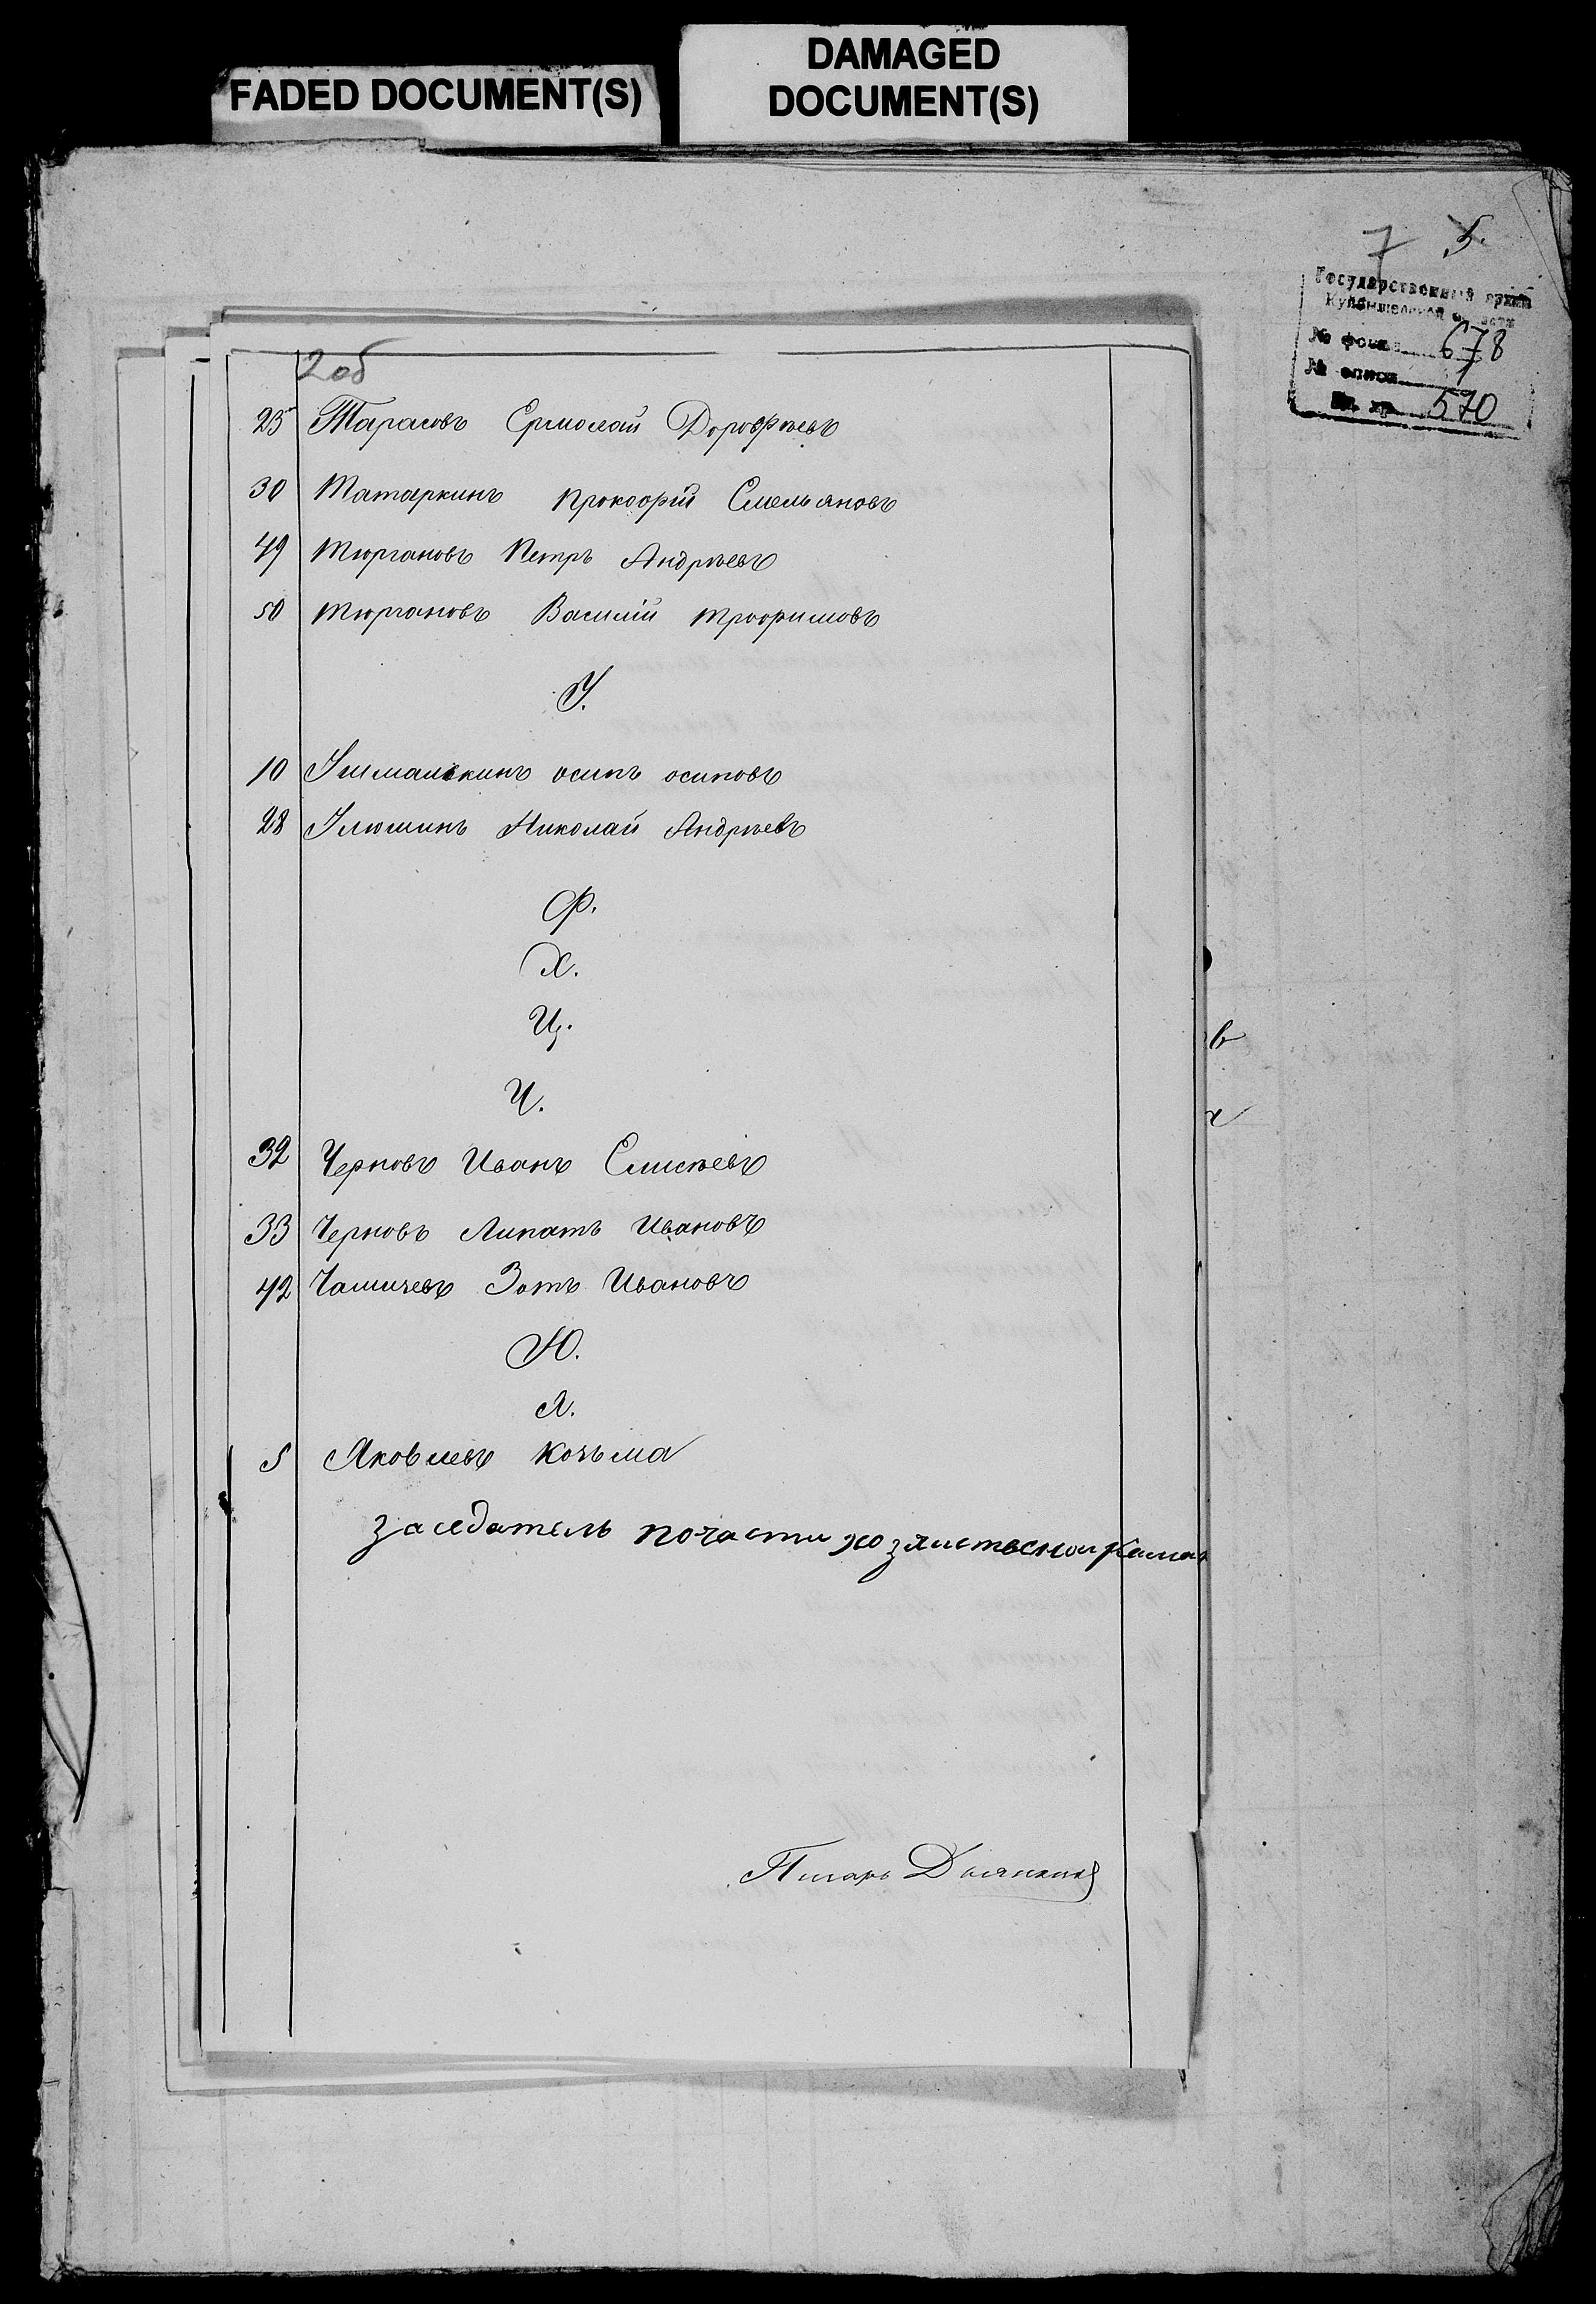 FADED DOCUMENT(S)
DAMAGED
DOCUMENT(S)
7 5.
Государственный архив
Куйбышевской области
№ фонда 678
№ описи 1
Ед. хр. 570
2об
25 Тарасовъ Ермолай Дорофѣевъ
30 Татаркинъ Прокофій Емельяновъ
49 Тюргановъ Петръ Андрѣевъ
50 Тюргановъ Василій Трофимовъ
У.
10 осипъ осиповъ
28 Улюшинъ Николай Андрѣевъ
Ф.
Х.
Ц.
Ч.
32 Черновъ Иванъ Елисѣевъ
33 Черновъ Липатъ Ивановъ
42 Зотъ Ивановъ
Ю.
Я.
5 Яковлевъ Козьма
заседатель почасти
Писарь